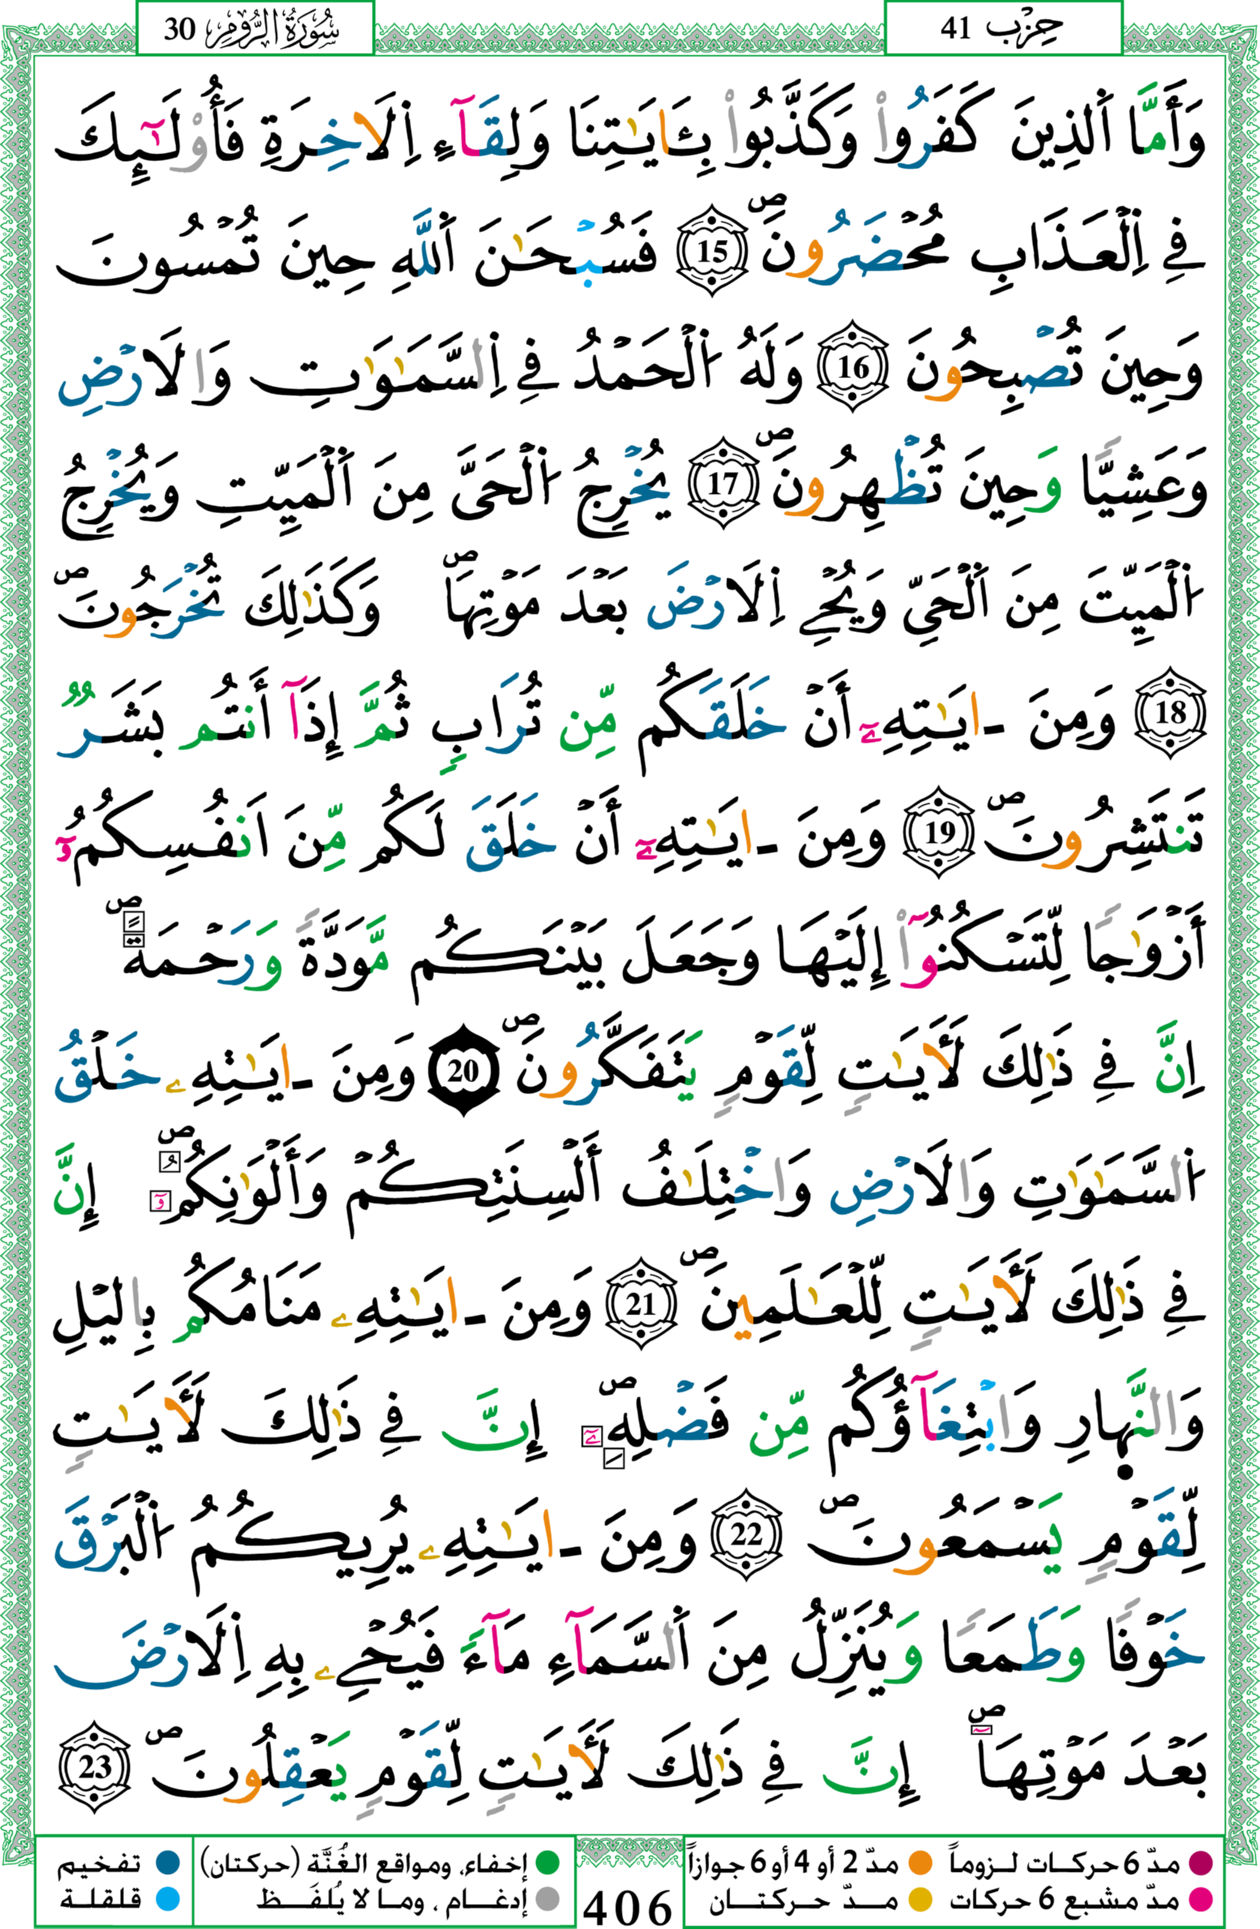 سُورَةُ الرُّومِ 30
حِزْب 41
وَأَمَّا اَ۬لذِينَ كَفَرُواْ وَكَذَّبُواْ بِـَٔايَٰتِنَا وَلِقَآءِ اِ۬لَاخِرَةِ فَأُوْلَٰٓئِكَ
فِے اِ۬لْعَذَابِ مُحْضَرُونَۖ 15 فَسُبْحَٰنَ اَ۬للَّهِ حِينَ تُمْسُونَ
وَحِينَ تُصْبِحُونَ 16 وَلَهُ اُ۬لْحَمْدُ فِے اِ۬لسَّمَٰوَٰتِ وَالَارْضِ
وَعَشِيّاً وَحِينَ تُظْهِرُونَۖ 17 يُخْرِجُ اُ۬لْحَيَّ مِنَ اَ۬لْمَيِّتِ وَيُخْرِجُ
اُ۬لْمَيِّتَ مِنَ اَ۬لْحَيِّ وَيُحْيِ اِ۬لَارْضَ بَعْدَ مَوْتِهَاۖ وَكَذَٰلِكَ تُخْرَجُونَۖ
18 وَمِنَ ـ ايَٰتِهِۦٓ أَنْ خَلَقَكُم مِّن تُرَابٖ ثُمَّ إِذَآ أَنتُم بَشَرٞ
تَنتَشِرُونَۖ 19 وَمِنَ ـ ايَٰتِهِۦٓ أَنْ خَلَقَ لَكُم مِّنَ اَنفُسِكُمُۥٓ
أَزْوَٰجاً لِّتَسْكُنُوٓاْ إِلَيْهَا وَجَعَلَ بَيْنَكُم مَّوَدَّةً وَرَحْمَةًۖ
اِنَّ فِے ذَٰلِكَ لَأٓيَٰتٍ لِّقَوْمٍ يَتَفَكَّرُونَۖ 20 وَمِنَ ـ ايَٰتِهِۦ خَلْقُ
اُ۬لسَّمَٰوَٰتِ وَالَارْضِ وَاخْتِلَٰفُ أَلْسِنَتِكُمْ وَأَلْوَٰنِكُمُۥٓۖ إِنَّ
فِے ذَٰلِكَ لَأٓيَٰتٍ لِّلْعَٰلَمِينَۖ 21 وَمِنَ ـ ايَٰتِهِۦ مَنَامُكُم بِاليْلِ
وَالنَّه۪ارِ وَابْتِغَآؤُكُم مِّن فَضْلِهِۦٓۖ إِنَّ فِے ذَٰلِكَ لَأٓيَٰتٍ
لِّقَوْمٍ يَسْمَعُونَۖ 22 وَمِنَ ـ ايَٰتِهِۦ يُرِيكُمُ اُ۬لْبَرْقَ
خَوْفاً وَطَمَعاً وَيُنَزِّلُ مِنَ اَ۬لسَّمَآءِ مَآءً فَيُحْيِۦ بِهِ اِ۬لَارْضَ
بَعْدَ مَوْتِهَآۖ إِنَّ فِے ذَٰلِكَ لَأٓيَٰتٍ لِّقَوْمٍ يَعْقِلُونَۖ 23
مدّ 6 حركات لزوماً مدّ 2 أو 4 أو 6 جوازاً
مدّ مشبع 6 حركات مدّ حركتان
406
إخفاء، ومواقع الغُنَّة (حركتان) تفخيم
إدغام ، وما لا يُلفَظ قلقلة